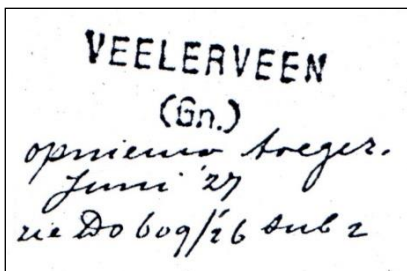 VEELERVEEN
(Gn.)
opnieuw toeger.
Juni '27
zie Do 609/26 sub 2